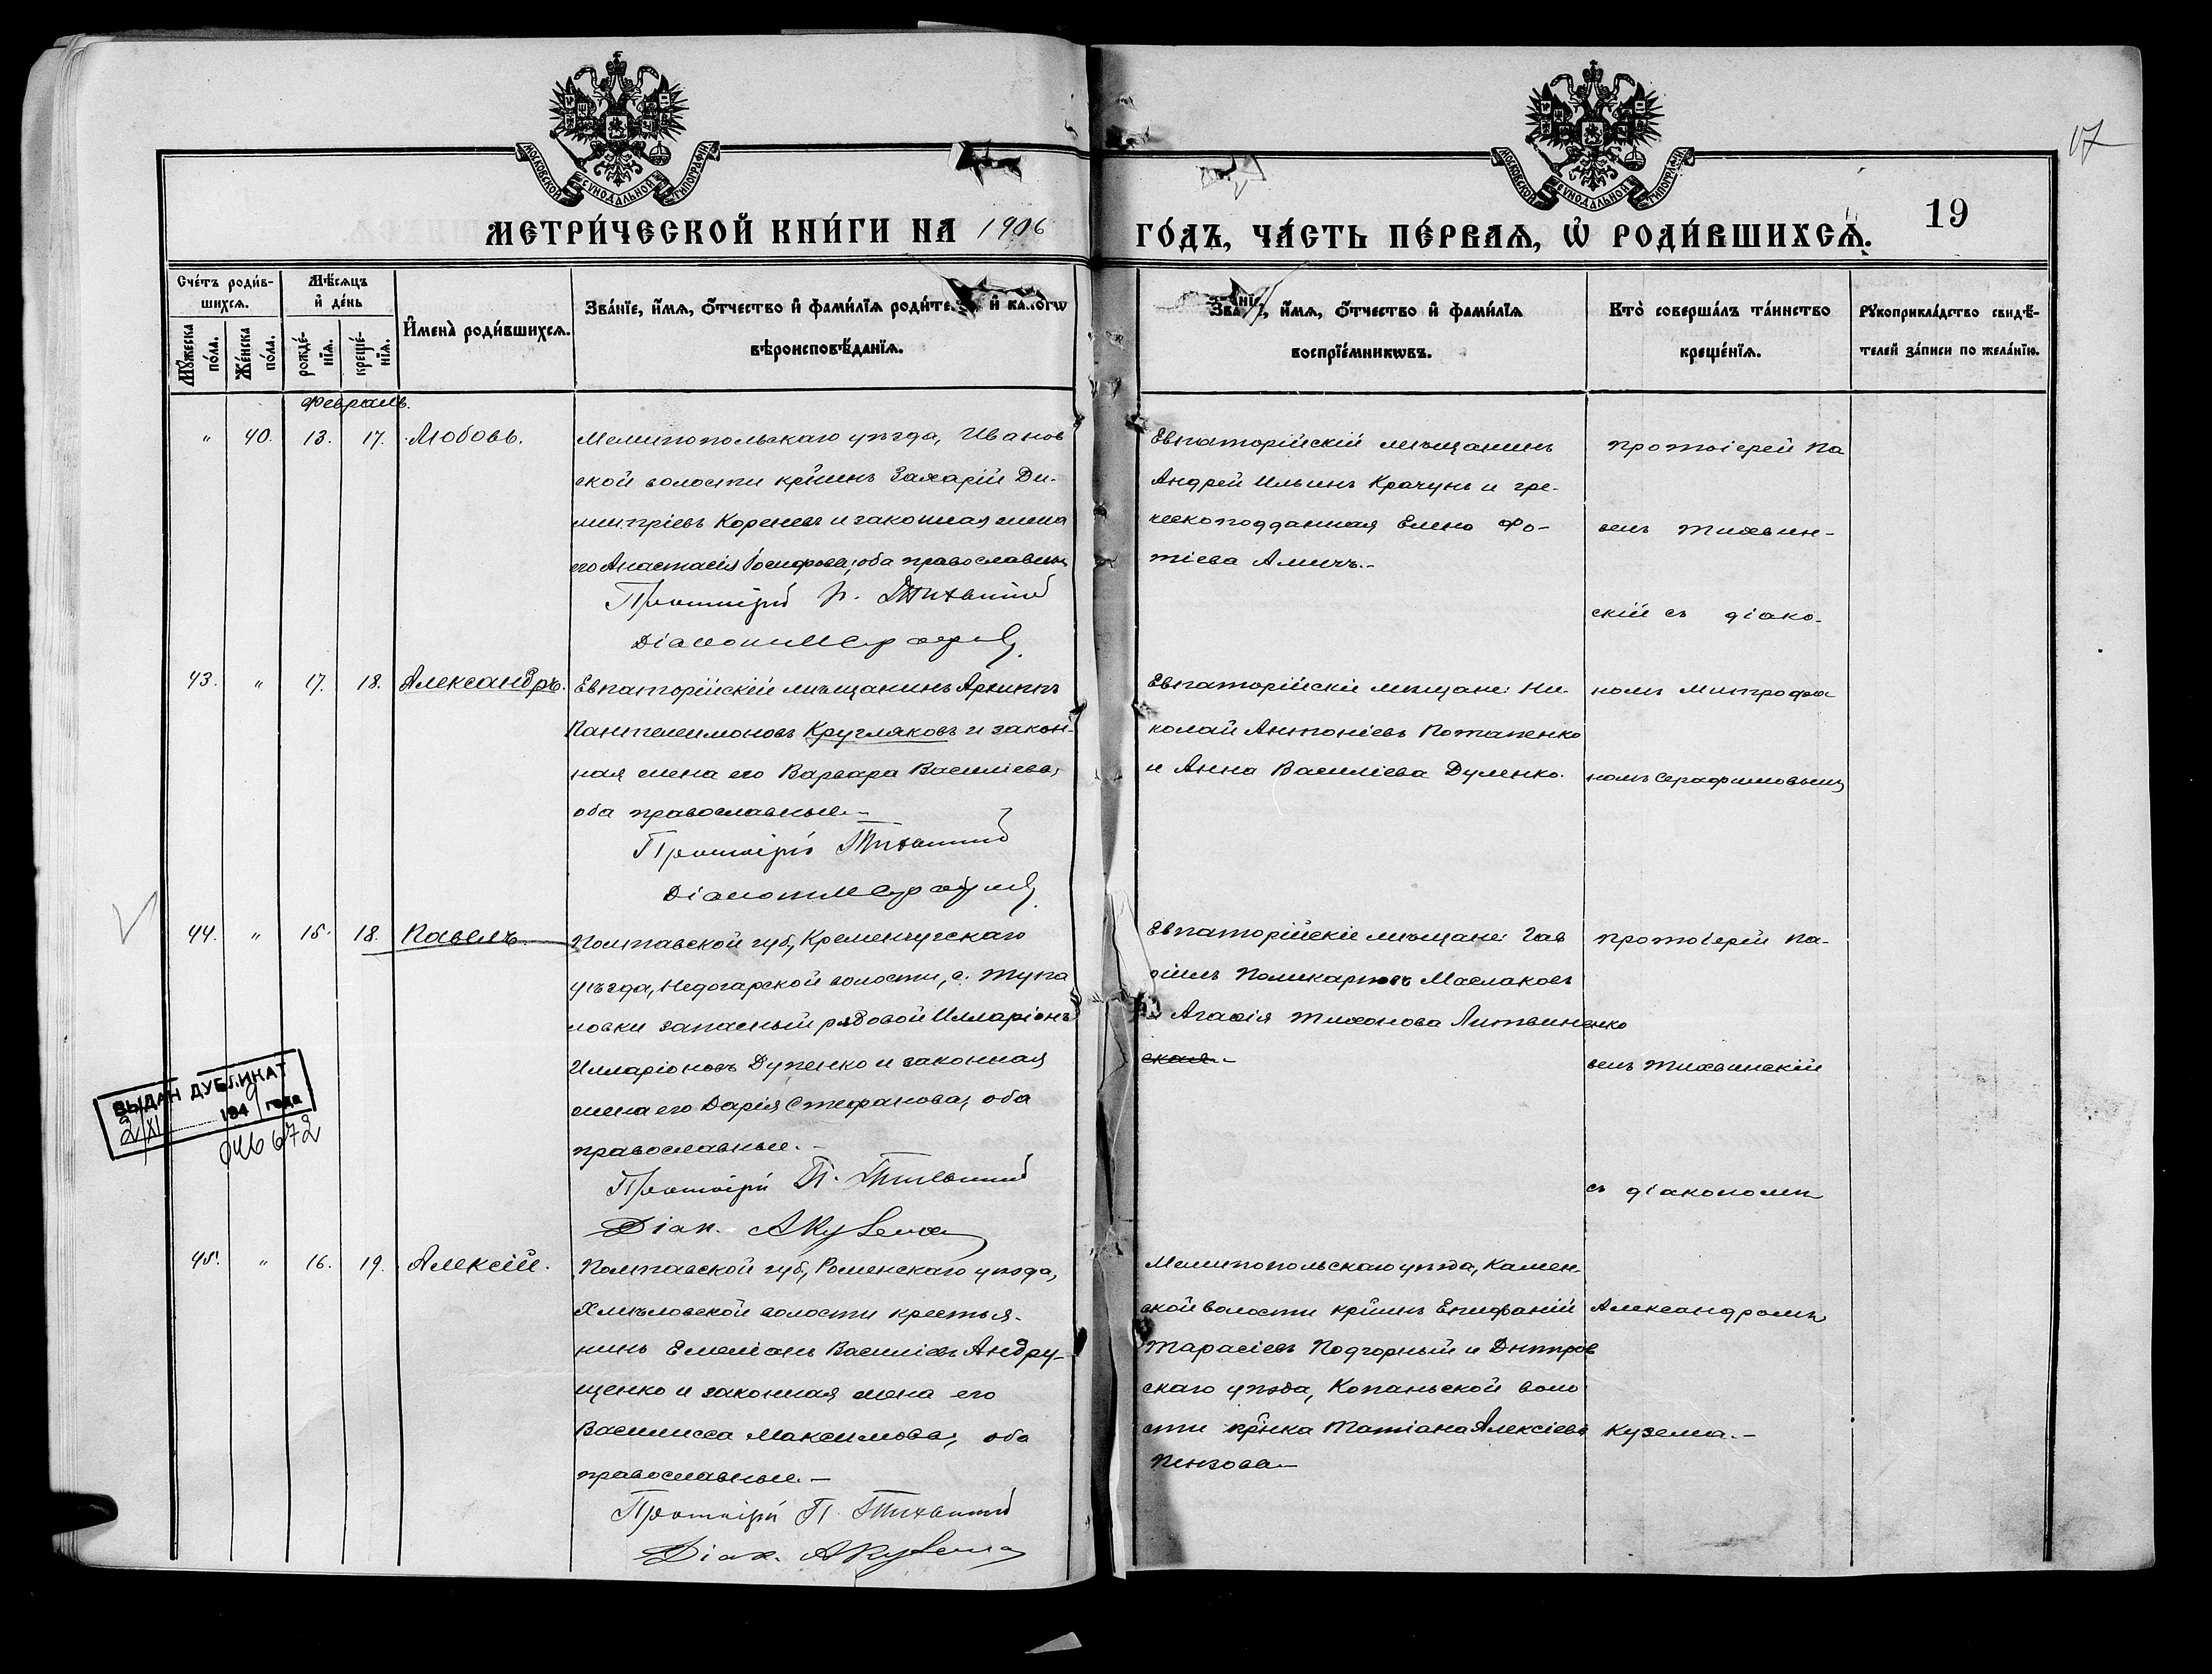 МОСКОВСКОЙ СѴНОДАЛЬНОЙ ТИПОГРАФІИ
МОСКОВСКОЙ СѴНОДАЛЬНОЙ ТИПОГРАФІИ
17
МЕТРИ́ЧЕСКОЙ КНИ́ГИ НА 1906
ГО́ДЪ, ЧА́СТЬ ПЕ́РВАѦ, Ѡ҆ РОДИ́ВШИХСѦ.
19
Сче́тъ роди́в-
шихсѧ.
Мꙋ́жеска по́ла.
Же́нска по́ла.
Мѣ́сѧцъ
и҆ де́нь
рожде́-
нїѧ.
креще́-
нїѧ.
И҆мена̀ роди́вшихсѧ.
Зва́нїе, и҆́мѧ, ѻ҆́тчество и҆ фами́лїѧ роди́те и҆ ка
вѣроисповѣ́данїѧ.
Зва , и҆́мѧ, ѻ҆́тчество и҆ фами́лїѧ
воспрїе́мникѡвъ.
Кто̀ соверша́лъ та́инство
креще́нїѧ.
Рꙋкоприкла́дство свидѣ́-
телей за́писи по жела́нїю.
Февраль.
" 40. 13. 17. Любовь.
Мелитопольскаго уѣзда, Иванов
ской волости кр̃нинъ Захарій Ди-
митріевъ Кореневъ и законная жена
его Анастасія Іосифова, оба православные
Протоіерей П. Тихвинскій
Діаконъ М Серафимовъ
Евпаторійскій мѣщанинъ
Андрей Ильинъ Крачунъ и гре-
ческоподданная Елена Фо-
тіева Амичъ.-
протоіерей Па
велъ Тихвин-
скій съ діако-
43. " 17. 18. Александръ.
Евпаторійскій мѣщанинъ Архиппъ
Пантелеимоновъ Кругляковъ и закон-
ная жена его Варвара Василіева,
оба православные.-
Протоіерей Тихвинскій
Діаконъ М Серафимовъ
Евпаторійскіе мѣщане: Ни-
колай Антоніевъ Потапенко
и Анна Василіева Дуленко.
номъ Митрофа-
номъ Серафимовымъ
44. " 15. 18. Павелъ.
Полтавской губ., Кременчугскаго
уѣзда, Недогарской волости, с. Тупа
ловки запасный рядовой Илларіонъ
Илларіоновъ Дупенко и законная
жена его Дарія Стефанова, оба
православные.-
Протоіерей П. Тихвинскій
Діак. А Кузема
Евпаторійскіе мѣщане: Гав
ріилъ Поликарповъ Маслаковъ
и Агаѳія Тихонова Литвиненко
ская.-
протоіерей Па-
велъ Тихвинскій
съ діакономъ
ВЫДАН ДУБЛИКАТ
2/XI 1949 года
046672
45. " 16. 19. Алексій.
Полтавской губ., Роменскаго уѣзда,
Хмѣловской волости крестья-
нинъ Емеліанъ Василіевъ Андру-
щенко и законная жена его
Василисса Максимова, оба
православные.-
Протоіерей П. Тихвинскій
Діак. А Кузема
Мелитопольскаго уѣзда, Камен-
ской волости кр̃нинъ Епифаній
Тарасіевъ Подгорный и Днѣпров
скаго уѣзда, Копаньской воло
сти кр̃нка Татіана Алексіева
Пензова.-
Александромъ
Кузема.-